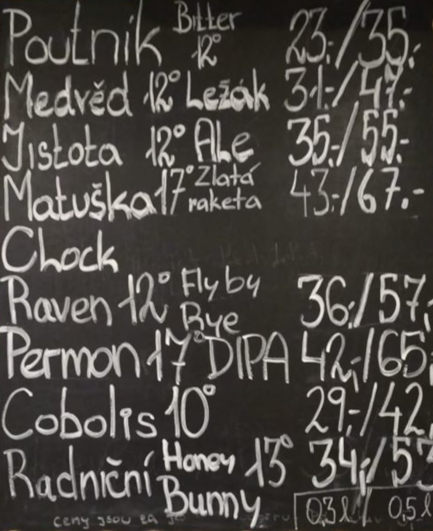 Poutník Bitter 12° 23,-/35,-
Medvěd 12° Ležák 31,-/47,-
Jistota 12° Ale 35,-/55,-
Matuška 17° Zlatá raketa 43,-/67.-
Chock
Raven 12° Fly by Rye 36,-/57,
Permon 17° DIPA 42,-/65,
Cobolis 10° 29,-/42,
Radniční Honey Bunny 13° 34,-/53
ceny jsou za
0,3 l / 0,5 l